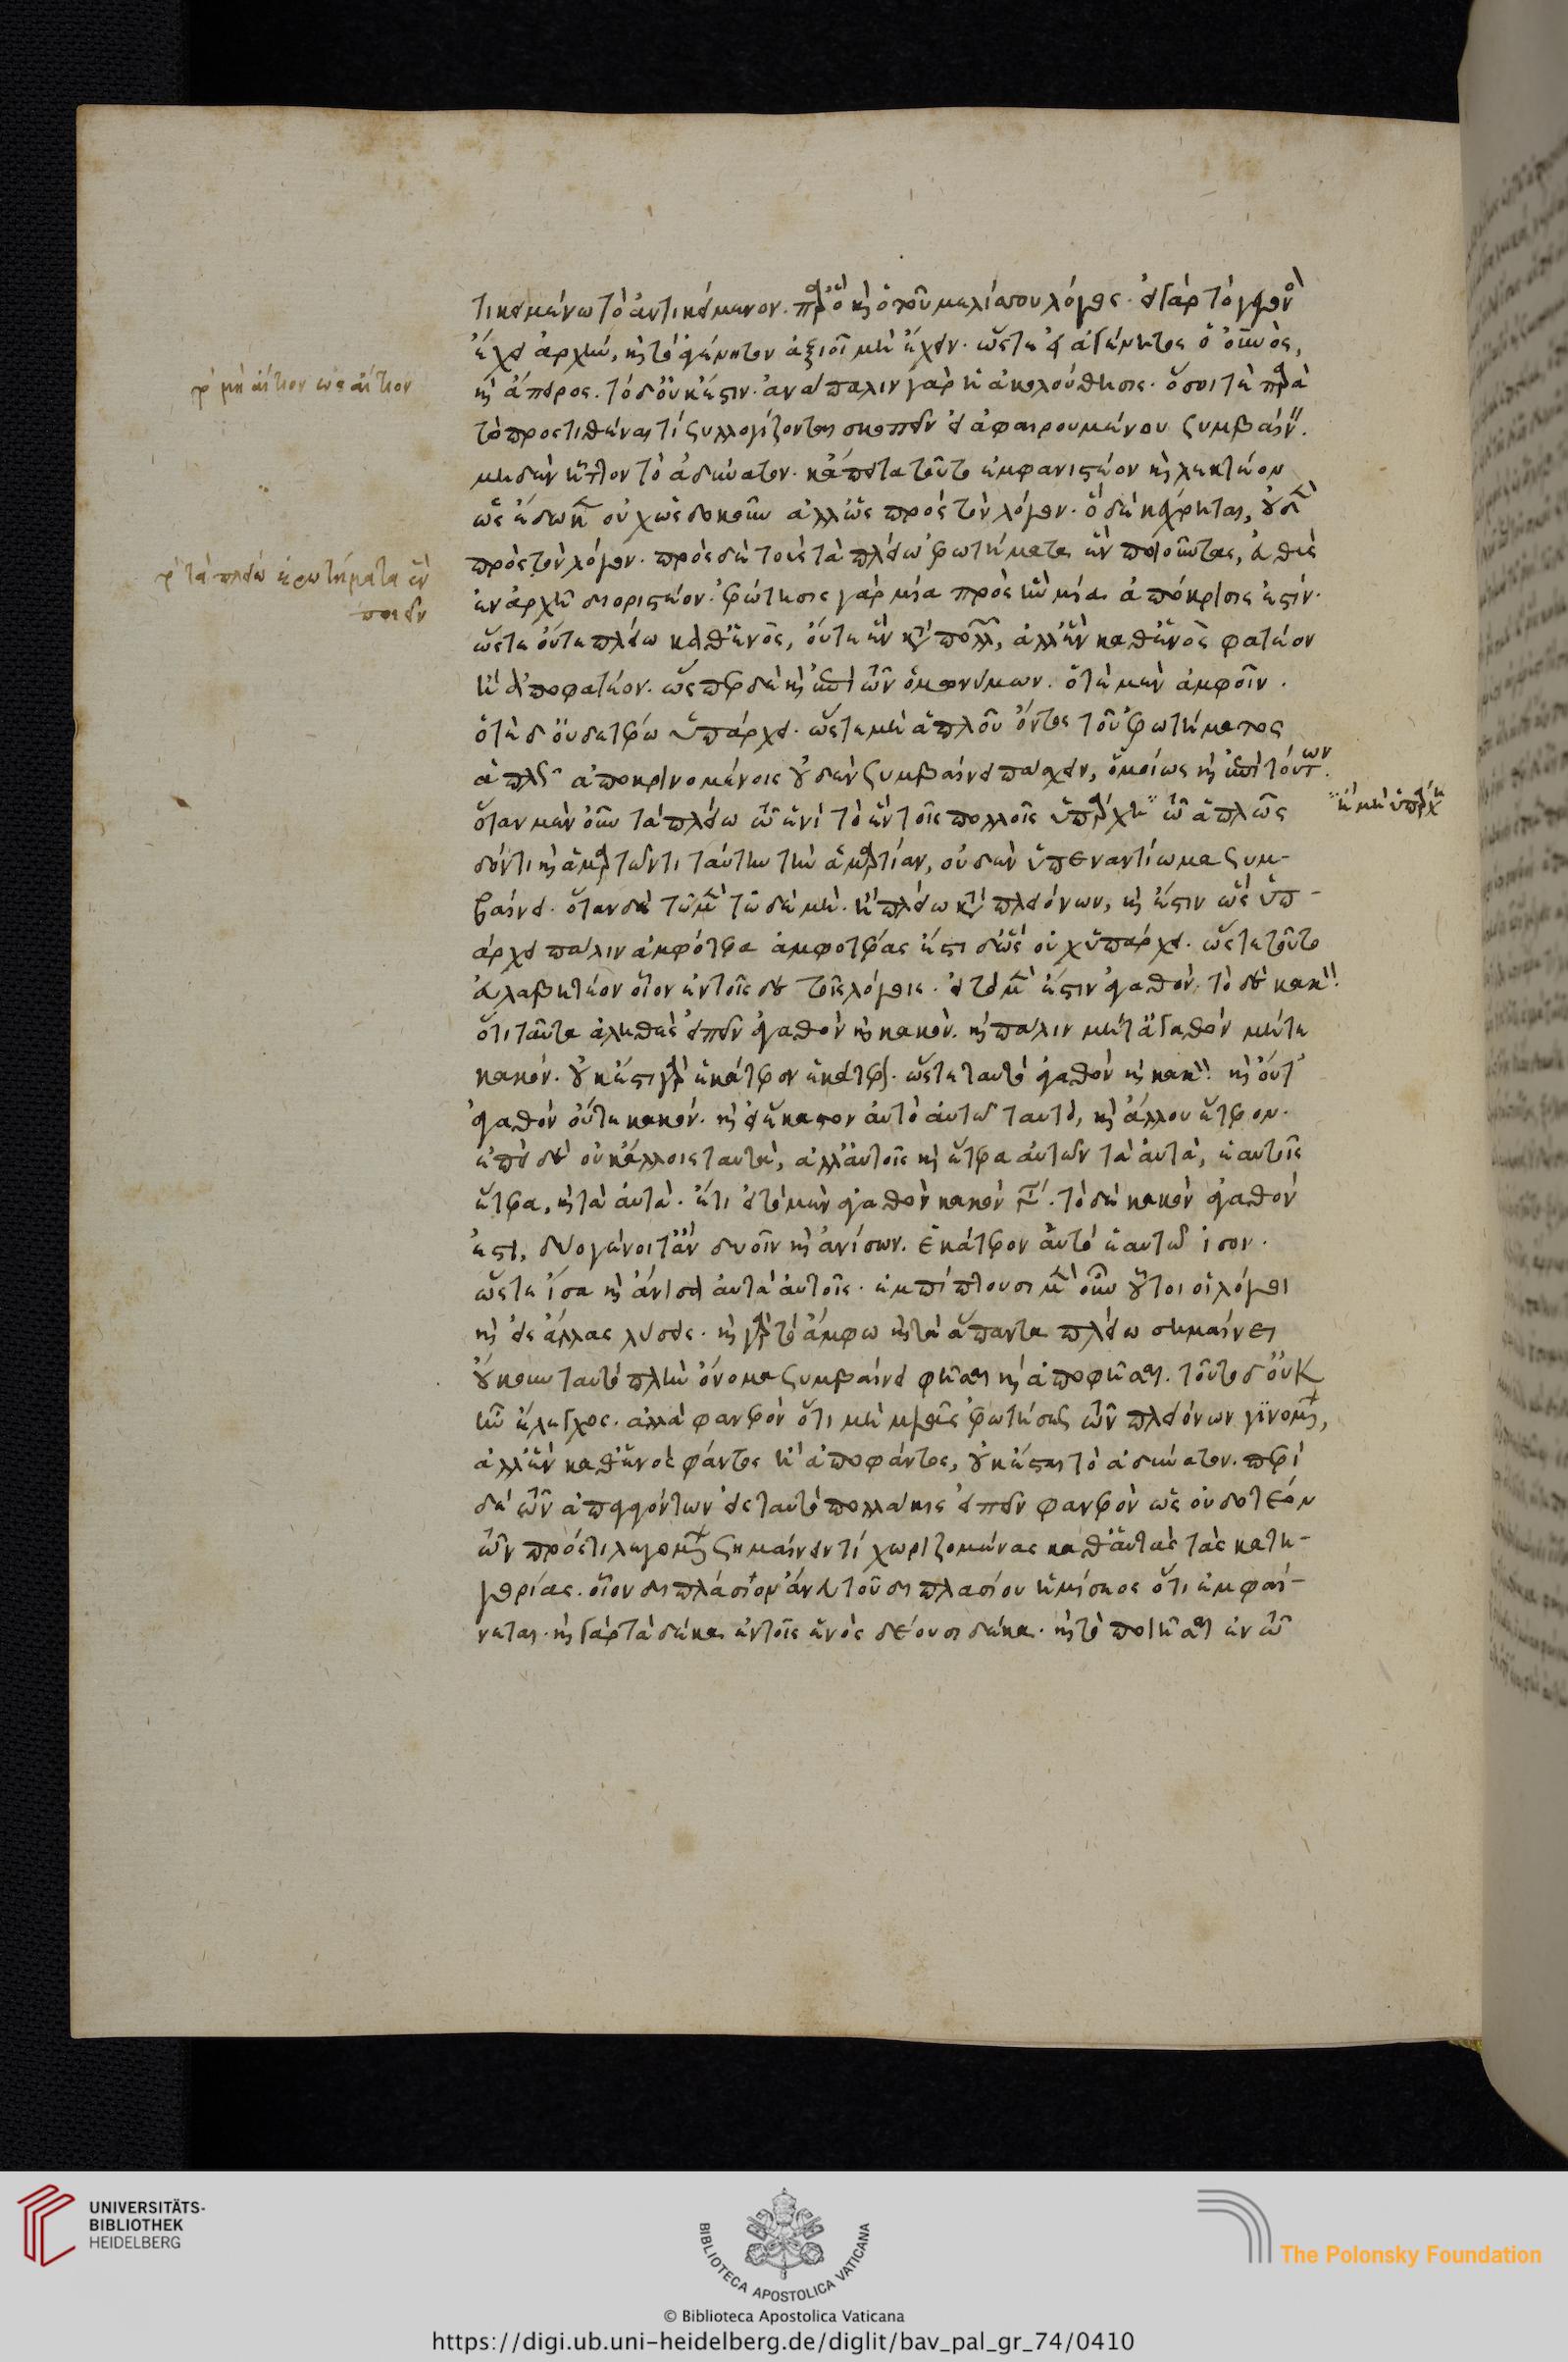 τικειμένω τὸ ἀντικείμενον. παρ' ὃ καὶ ὁ τοῦ μελίσσου λόγος. εἰ γὰρ τὸ γεγονὸς
ἔχει ἀρχὴν, καὶ τὸ ἀγένητον ἀξιοῖ μὴ ἔχειν. ὥστε εἰ ἀγένητος ὁ οὐνὸς,
καὶ ἄπειρος. τὸ δ' οὐκ ἔστιν. ἀνάπαλιν γὰρ ἡ ἀκολούθησις. ὅσοι τὲ παρὰ
τὸ προστιθέναι τί συλλογίζονται σκοπεῖν εἰ ἀφαιρουμένου συμβαίνει
μηδὲν ἧττον τὸ ἀδύνατον. κἄπειτα τοῦτο ἐμφανιστέον καὶ λεκτέον
ὡς ἔδωκεν οὐχ ὡς δοκοῦν ἀλλ' ὡς πρὸς τὸν λόγον. ὁ δὲ κέχρηται, οὐδὲ
πρὸς τὸν λόγον. πρὸς δὲ τοὺς τὰ πλείω ἐρωτήματα ἓν ποιοῦντας, εὐθὺς
ἐν ἀρχῆ διοριστέον. ἐρώτησις γὰρ μία πρὸς ἣν μία ἀπόκρισις ἐστίν.
ὥστε οὔτε πλείω καθ' ἑνὸς, οὔτε ἓν κατὰ πολλῶν, ἀλλ' ἓν καθ' ἑνὸς φατέον
ἢ ἀποφατέον. ὥσπερ δὲ καὶ ἐπὶ τῶν ὁμωνύμων. ὁτὲ μὲν ἀμφοῖν.
ὁτὲ δ' οὐδετέρω ὑπάρχει. ὥστε μὴ ἁπλοῦ ὄντος τοῦ ἐρωτήματος
ἁπλῶς ἀποκρινομένοις οὐδὲν συμβαίνει πάσχειν, ὁμοίως καὶ ἐπὶ τούτων.
ὅταν μὲν οὖν τὰ πλείω τῶ ἑνὶ τὸ ἓν τοῖς πολλοῖς ὑπάρχη τῶ ἁπλῶς
ἢ μὴ ὑπάρχη
δόντι καὶ ἁμαρτόντι ταύτην τὴν ἁμαρτίαν, οὐδὲν ὑπεναντίωμα συμ-
βαίνει. ὅταν δὲ τῶ μὲν τῶ δὲ μὴ. ἢ πλείω κατὰ πλειόνων, καὶ ἔστιν ὡς ὑπ-
άρχει πάλιν ἀμφότερα ἀμφοτέροις ἔστι δ' ὡς οὐχ ὑπάρχει. ὥστε τοῦτο
εὐλαβητέον οἷον ἐν τοῖς δὲ τοῖς λόγοις. εἰ τὸ μὲν ἐστὶν ἀγαθὸν τὸ δὲ κακὸν.
ὅτι ταῦτα ἀληθὲς εἰπεῖν ἀγαθὸν καὶ κακὸν. καὶ πάλιν μήτ' ἀγαθὸν μήτε
κακὸν. οὐκ ἔστι γὰρ ἑκάτερον ἑκάτερον. ὥστε ταυτὸ ἀγαθὸν καὶ κακὸν. καὶ οὔτ'
ἀγαθὸν οὔτε κακὸν. καὶ εἰ ἕκαστον αὐτὸ αὐτῶ ταυτὸ, καὶ ἄλλου ἕτερον.
ἐπεὶ δὲ οὐκ ἄλλοις ταυτὰ, ἀλλ' αὑτοῖς καὶ ἕτερα αὐτῶν τὰ αὐτὰ, ἑαυτοῖς
ἕτερα, καὶ τὰ αὐτὰ. ἔτι εἰ τὸ μὲν ἀγαθὸν κακὸν γί. τὸ δὲ κακὸν ἀγαθὸν
ἐστι, δύο γένοιτ' ἂν δυοῖν καὶ ἀνίσων. ἑκάτερον αὐτὸ ἑαυτῶ ἴσον.
ὥστε ἴσα καὶ ἄνισα αὐτὰ αὑτοῖς. ἐμπίπτουσι μὲν οὖν οὗτοι οἱ λόγοι
καὶ εἰς ἄλλας λύσεις. καὶ γὰρ τὸ ἄμφω καὶ τὰ ἅπαντα πλείω σημαίνει
οὔκουν ταυτὸ πλὴν ὄνομα συμβαίνει φῆσαι καὶ ἀποφῆσαι. τοῦτο δ' οὐκ
ἦν ἔλεγχος. ἀλλὰ φανερὸν ὅτι μὴ μιᾶς ἐρωτήσεως τῶν πλειόνων γινομένης,
ἀλλ' ἓν καθ' ἑνὸς φάντος ἢ ἀποφάντος, οὐκ ἔσται τὸ ἀδύνατον. περὶ
δὲ τῶν ἀπαγόντων εἰς ταυτὸ πολλάκις εἰπεῖν φανερὸν ὡς οὐ δοτέον
τῶν πρός τι λεγομένων σημαίνειν τί χωριζομένας καθ' αὑτὰς τὰς κατη-
γορίας. οἷον διπλάσιον ἄνευ τοῦ διπλασίου ἡμίσεος ὅτι ἐμφαί-
νεται. καὶ γὰρ τὰ δέκα ἐν τοῖς ἑνὸς δέουσι δέκα. καὶ τὸ ποιῆσαι ἐν τῶ
πρ' μὴ αἴτιον ὡς αἴτιον
πρ' τὰ πλείω ἐρωτήματα ἓν
ποιεῖν
UNIVERSITÄTS-
BIBLIOTHEK
HEIDELBERG
BIBLIOTECA APOSTOLICA VATICANA
© Biblioteca Apostolica Vaticana
The Polonsky Foundation
https://digi.ub.uni-heidelberg.de/diglit/bav_pal_gr_74/0410